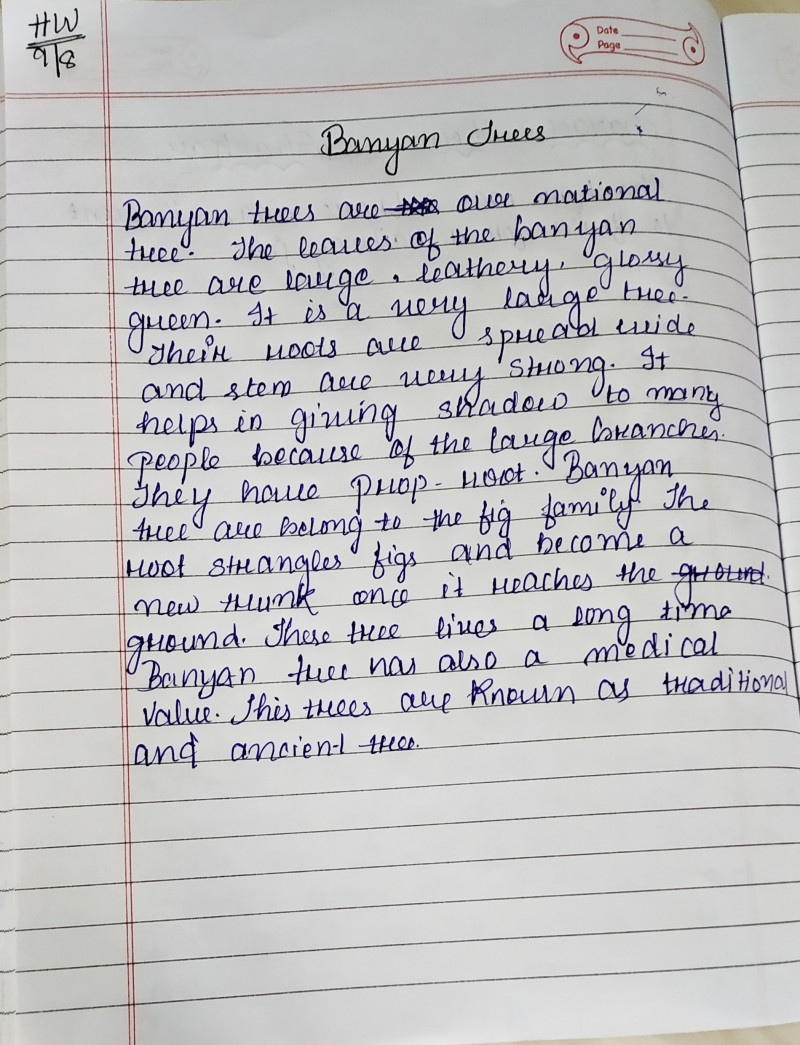 HW
9/8
Date
Page
Banyan Trees
Banyan trees are our national
tree. The leaves of the banyan
tree are large, leathery, glossy
green. It is a very large tree.
Their roots are spread wide
and stem are very strong. It
helps in giving shadow to many
people because of the large branches.
They have prop-root. Banyan
tree are belong to the fig family. The
root strangles figs and become a
new trunk once it reaches the ground.
ground. These tree lives a long time
Banyan tree has also a medical
value. This trees are known as traditional
and ancient tree.